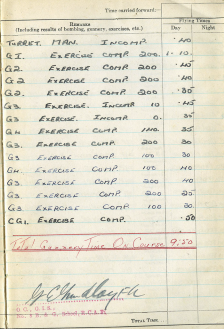 Time carried forward:—
REMARKS Flying Times
(Including results of bombing, gunnery, exercises, etc.) Day Night
TURRET. MAN. INCOMP. .40
G1. EXERCISE COMP. 200. 1.10.
G2. EXERCISE COMP 200 .45
G2 EXERCISE COMP 200 .40
G2. EXERCISE COMP. 200. .30
G3. EXERCISE. INCOMP 10 .45
G3 EXERCISE. INCOMP. 0. .35
G4 EXERCISE COMP 140. .35
G3. EXERCISE COMP. 200 .30
G3 EXERCISE COMP 100 .30
G4. EXERCISE COMP 100 .40
G3. EXERCISE COMP 200 .40
G3 EXERCISE COMP 200 .25
G3 EXERCISE COMP. 100 .30
CG1. EXERCISE COMP. .50
Total Gunnery Time On Course 9:50
TOTAL TIME